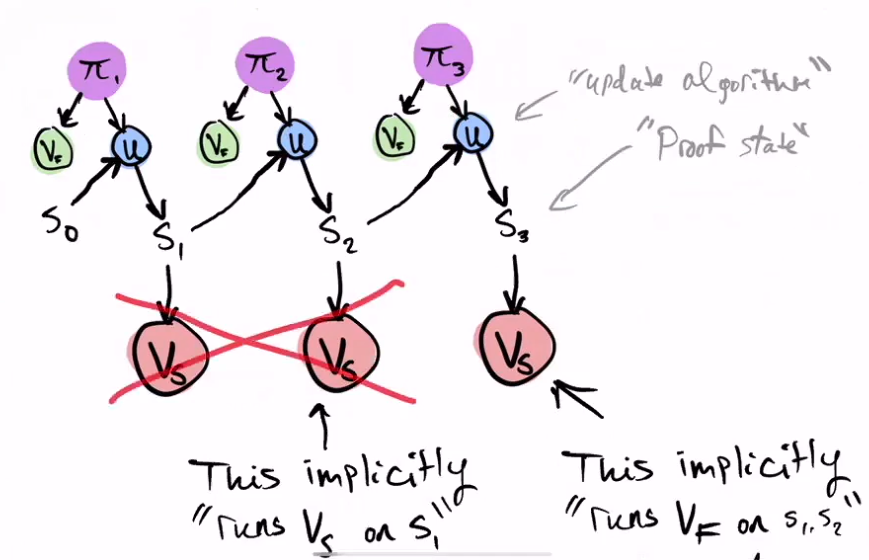 π₁ π₂ π₃
"update algorithm"
V_F u V_F u V_F u
"Proof state"
S₀ S₁ S₂ S₃
V_S V_S V_S
This implicitly
"runs V_S on S₁"
This implicitly
"runs V_F on S₁, S₂"